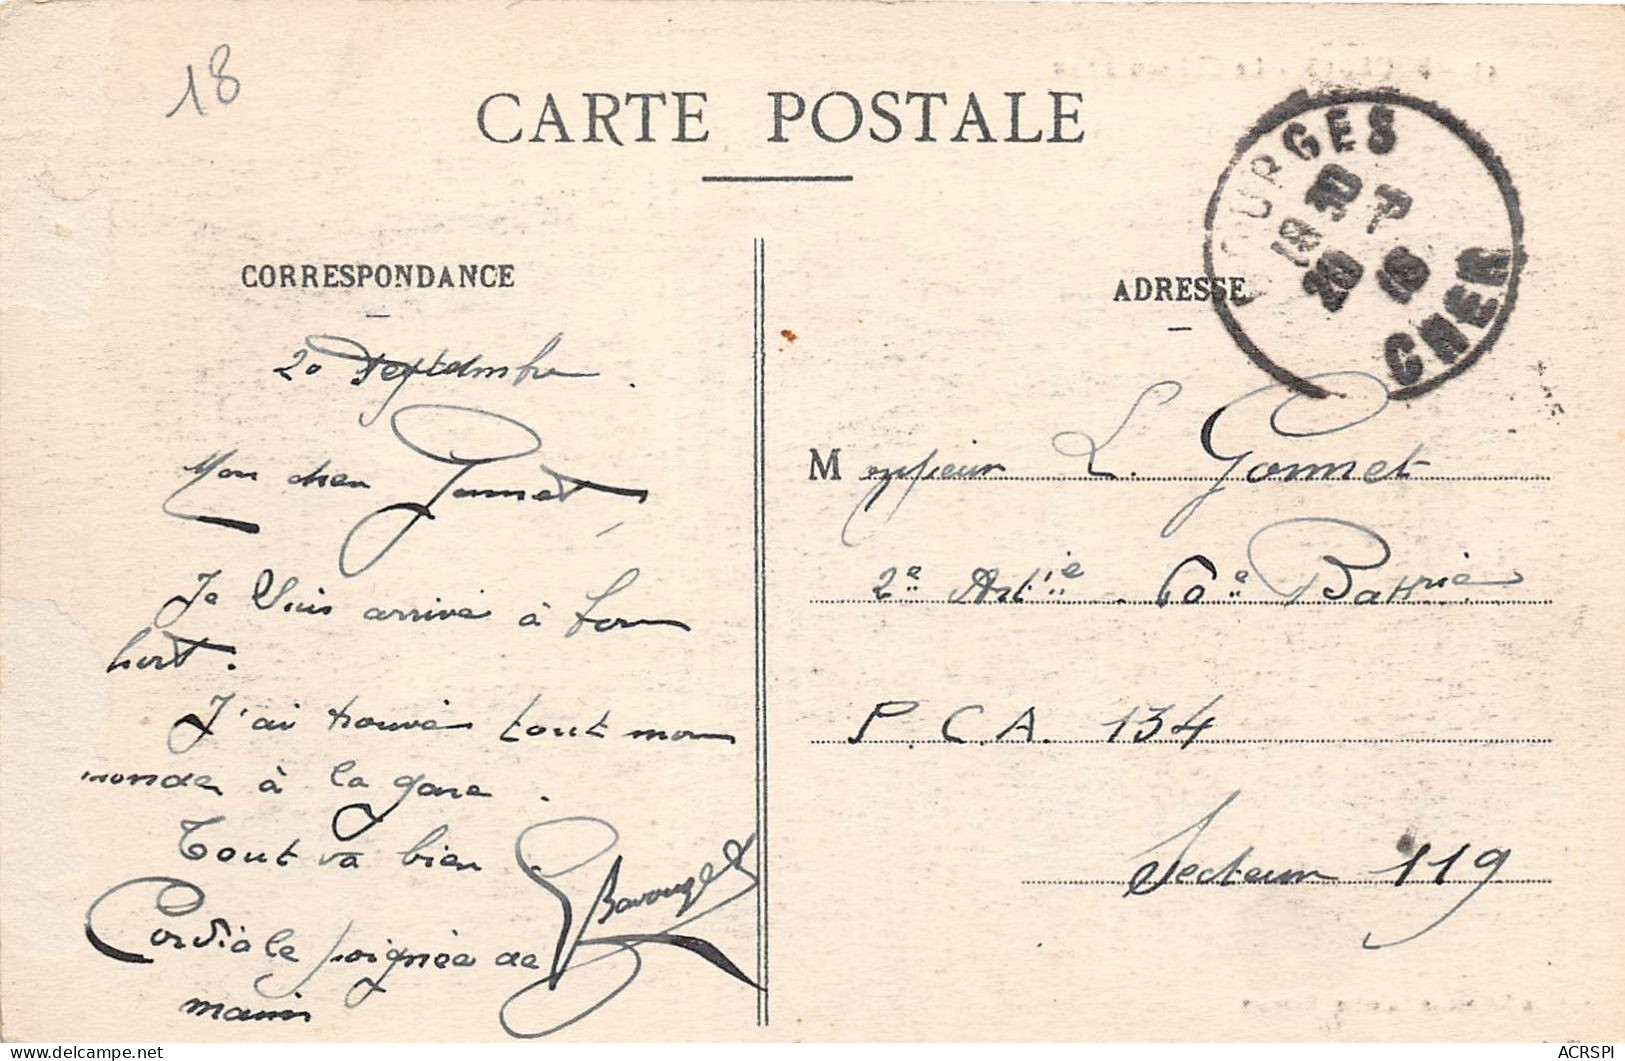 18
CARTE POSTALE
BOURGES
CHER
CORRESPONDANCE
ADRESSE
20 Septembre.
Mon cher Gonnet,
Je suis arrivé à bon
port.
J'ai trouvé tout mon
monde à la gare.
Tout va bien.
Cordiale poignée de
main
Monsieur L. Gonnet
2e Artie. 60e Battrie
P.C.A. 134
Secteur 119
ACRSPI